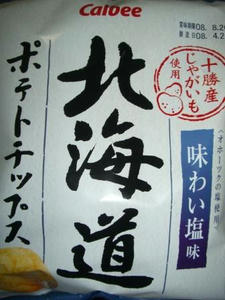 Calbee
賞味期限08. 8.20
製造08. 4.2
十勝産
じゃがいも
使用
北海道
ポテトチップス
味わい塩味
(オホーツクの塩使用)